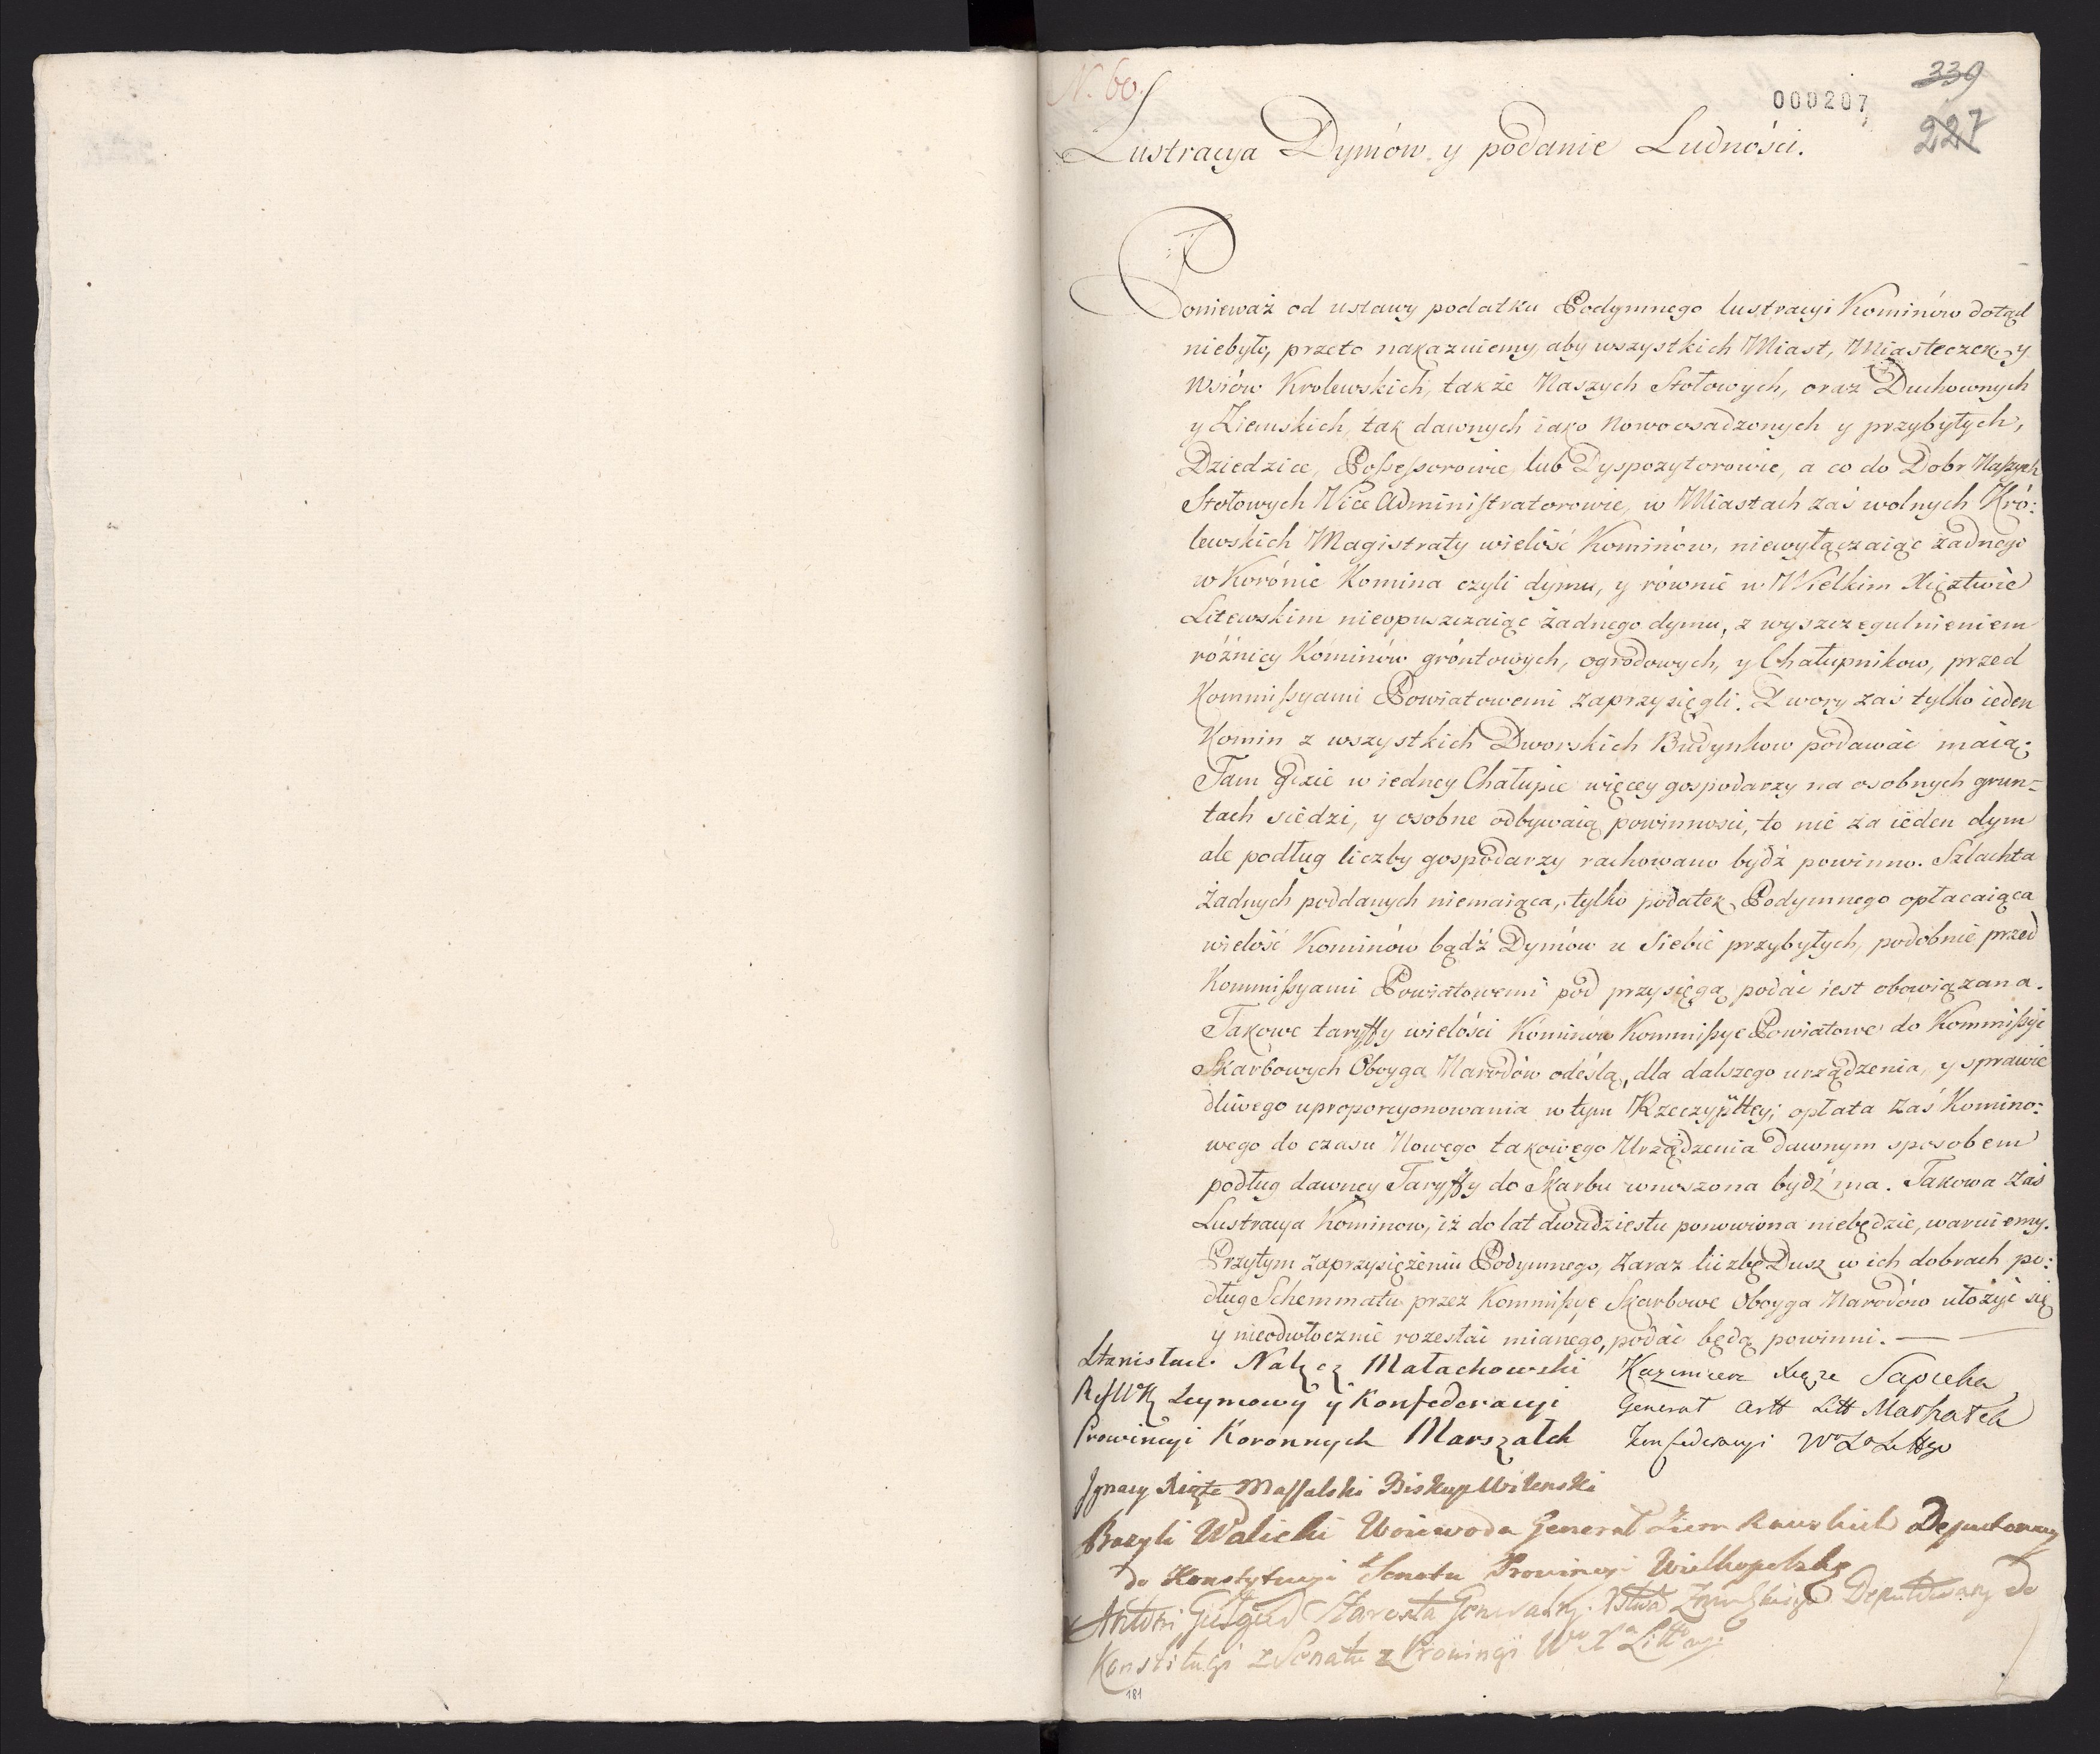 N. 60.
339
000207
227
Lustracya Dymów y podanie Ludności.
Ponieważ od ustawy podatku Podymnego lustracyi Kominów dotąd
niebyło, przeto nakazuiemy, aby wszystkich Miast, Miasteczek, y
Wsiów Krolewskich, także Naszych Stołowych, oraz Duchownych
y Ziemskich, tak dawnych iako nowoosadzonych y przybyłych,
Dziedzice, Possessorowie, lub Dyspozytorowie, a co do Dobr Naszych
Stołowych Vice Administratorowie, w Miastach zaś wolnych Kró:
lewskich Magistraty wielość Kominów, niewyłączaiąc żadnego
w Korónie Komina czyli dymu, y równie w Wielkim Xięztwie
Litewskim nieopuszczaiąc żadnego dymu, z wyszczegulnieniem
różnicy Kominów gróntowych, ogrodowych, y Chałupnikow, przed
Kommissyami Powiatowemi zaprzysięgli. Dwory zaś tylko ieden
Komin z wszystkich Dworskich Budynkow podawać maią;
Tam gdzie w iedney Chałupie więcey gospodarzy na osobnych grun=
tach siedzi, y osobne odbywaią powinnosci, to nie za ieden dym
ale podług liczby gospodarzy rachowano bydź powinno. Szlachta
żadnych poddanych niemaiąca, tylko podatek Podymnego opłacaiąca
wielość Kominów bądź Dymów u Siebie przybyłych, podobnie przed
Kommissyami Powiatowemi pod przysięgą podać iest obowiązana.
Takowe taryffy wielości Kominów Kommissye Powiatowe do Kommissyi
Skarbowych Oboyga Narodów odeślą, dla dalszego urządzenia, y sprawie
dliwego uproporcyonowania w tym Rzeczypttey; opłata zaś Komino:
wego do czasu Nowego takowego Urządzenia dawnym sposobem
podług dawney Taryffy do Skarbu wnoszona bydź ma. Takowa zaś
Lustracya Kominow, iż do lat dwudziestu ponowiona niebędzie, waruiemy.
Przytym zaprzysiężeniu Podymnego, zaraz liczbę Dusz w ich dobrach po:
dług Schemmatu przez Kommissye Skarbowe Oboyga Narodów ułożyć się
y nieodwłocznie rozesłać mianego, podać będą powinni.
Stanisław Nałęcz Małachowski
RefWK Seymowy y Konfederacyi
Prowincyi Koronnych Marszałek
Kazimierz Xiąże Sapieha
Generał Artt Litt Marszałek
Konfederacyi Wo Xa Littgo
Ignacy Xiąże Massalski Biskup Wilenski
Bazyli Walicki Woiewoda Generał Ziem Rawskich Deputowany
do Konstytucyi z Senatu Prowincyi Wielkopolsky
Antoni Giełgud Starosta Generalny Xstwa Zmudzkiego Deputowany do
Konstitucyi z Senatu z Prowincyi Wo Xa Litt
181